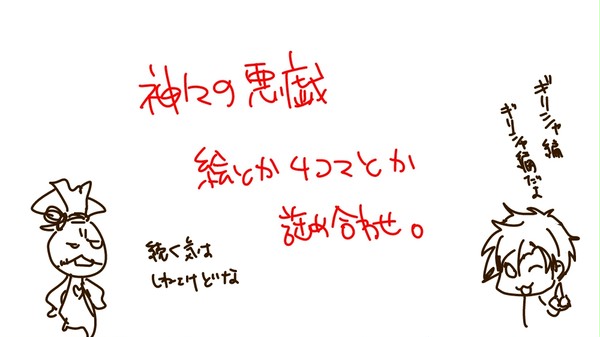 神々の悪戯
絵とか4コマとか
詰め合わせ。
ギリシャ編
ギリシャ編だよ
続く気は
しねェけどな